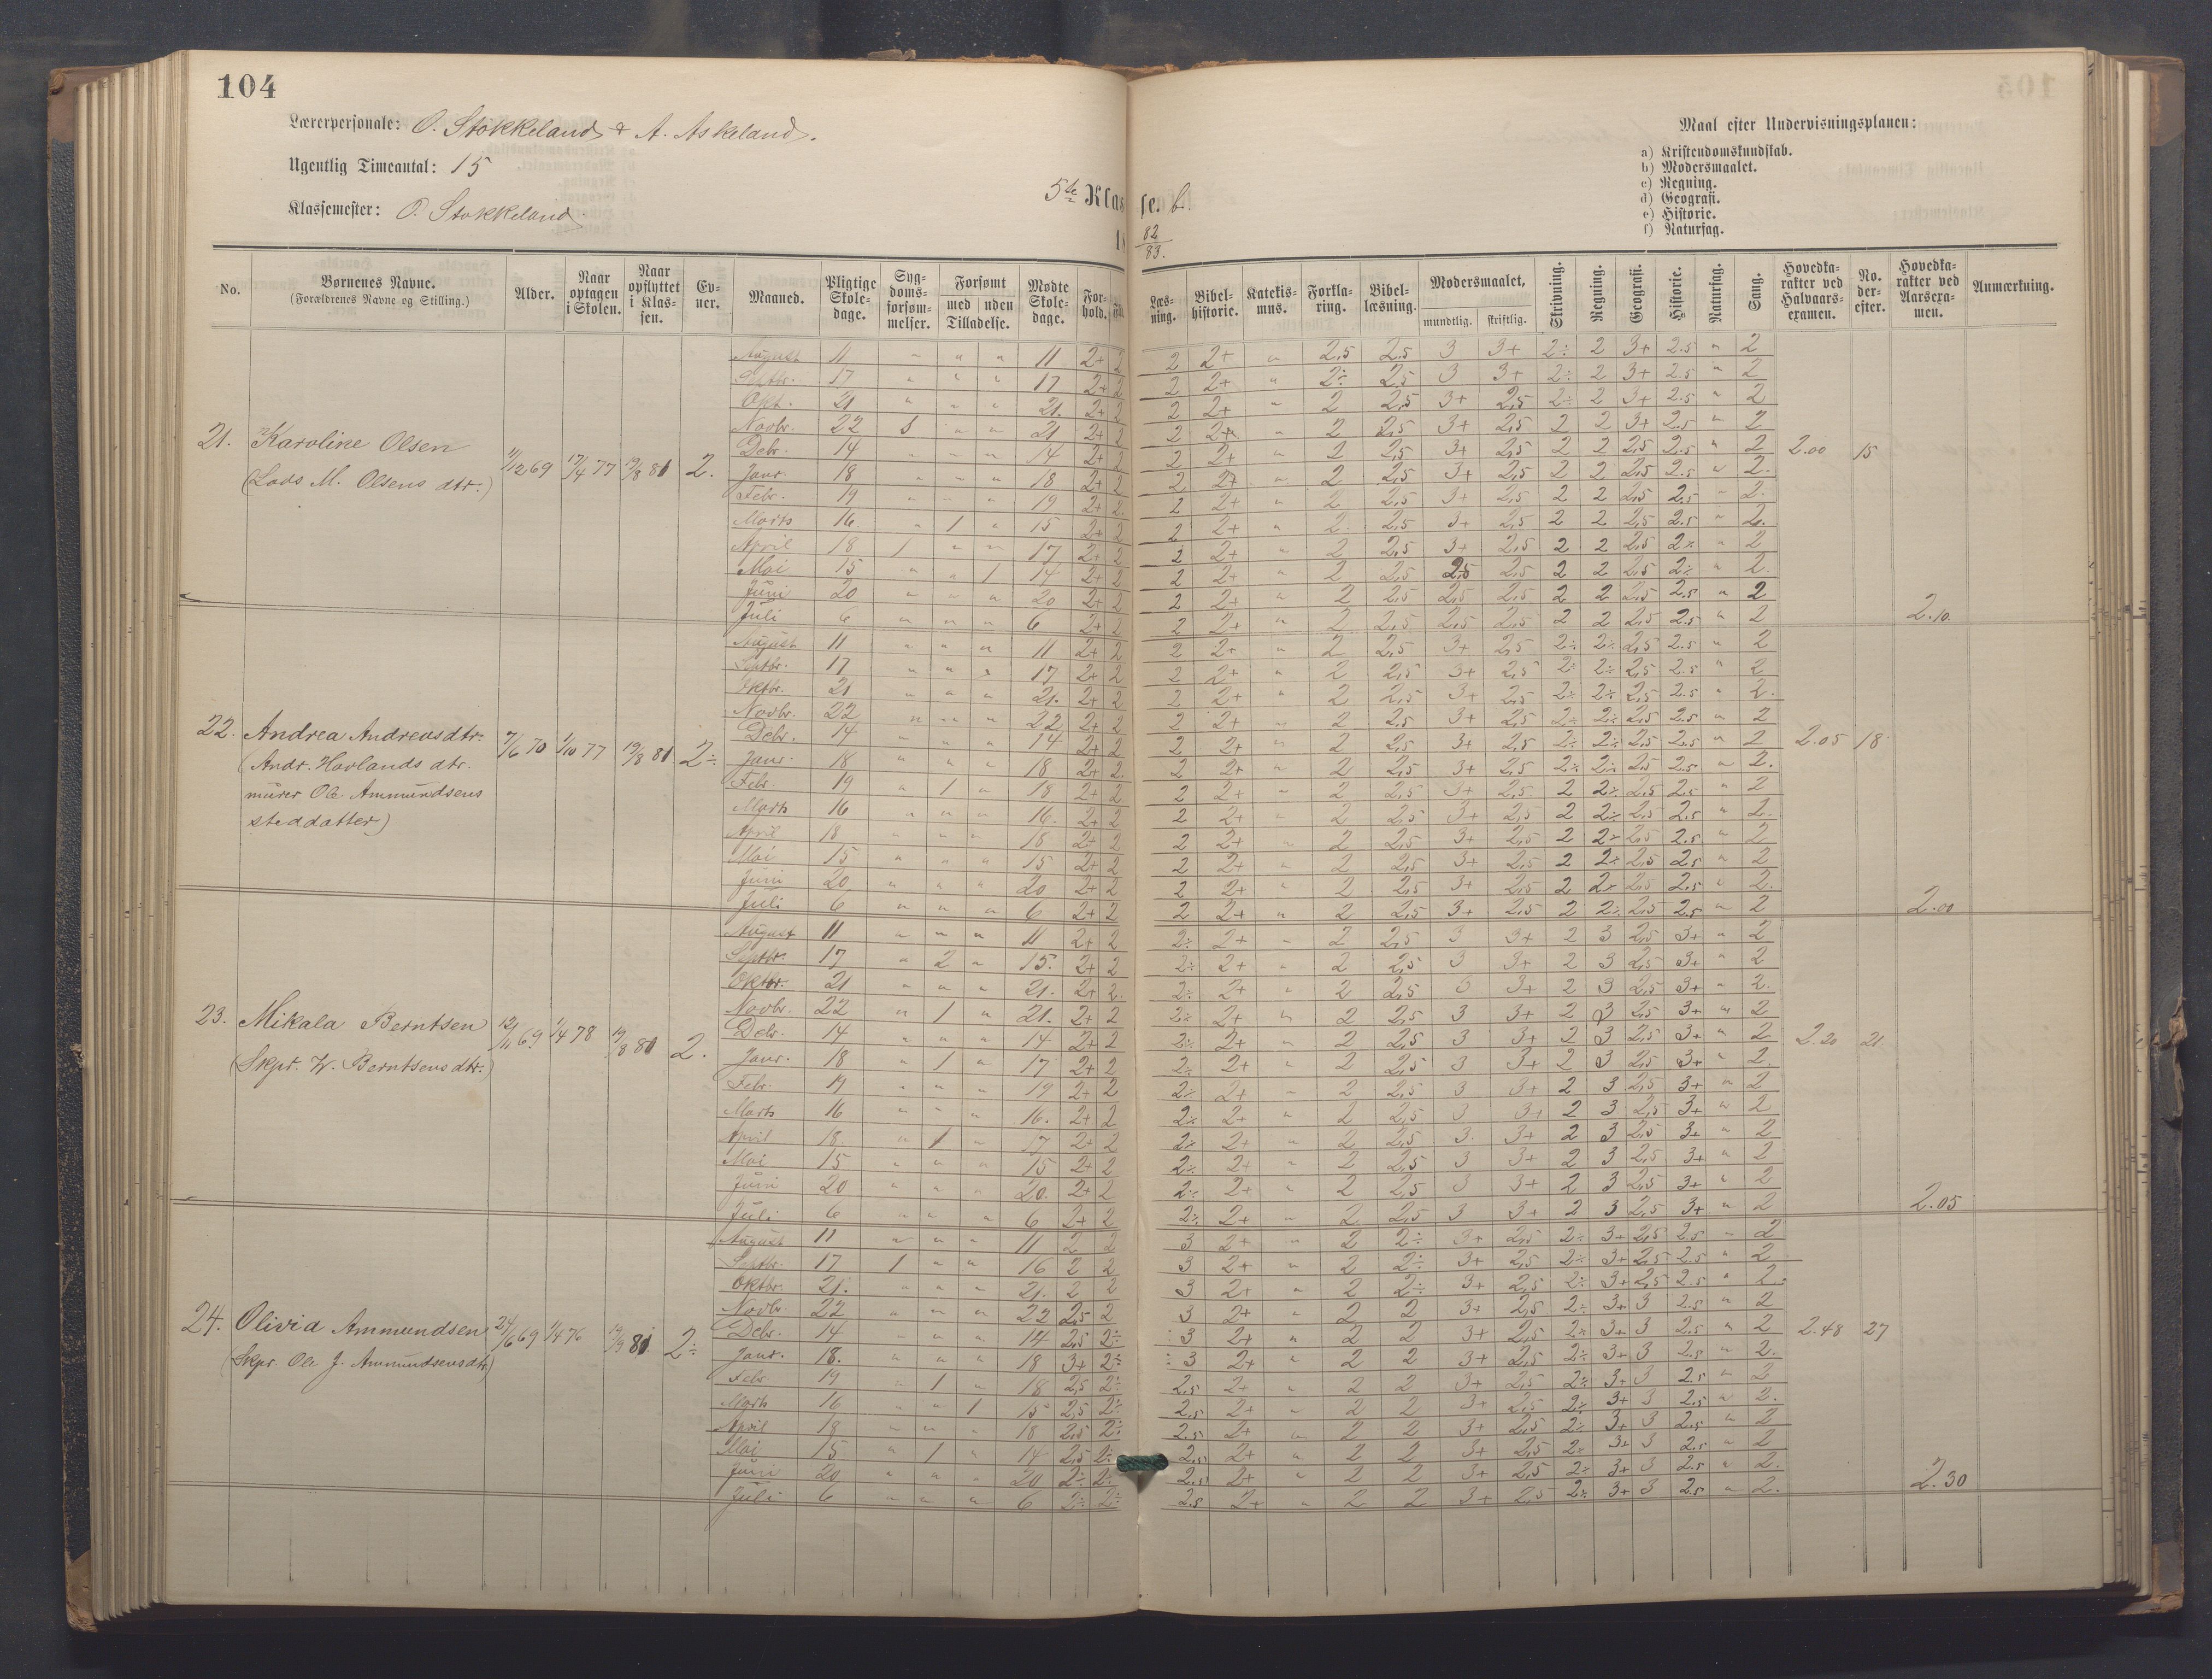 104
Lærerpersonale: O. Stokkeland & A. Askeland.
Ugentlig Timeantal: 15
Klassemester: O. Stokkeland
5te Klasse. b.
18 82/83.
Maal efter Undervisningsplanen:
a) Kristendomskundskab.
b) Modersmaalet.
c) Regning.
d) Geografi.
e) Historie.
f) Naturfag.
No. | Børnenes Navne. (Forældrenes Navne og Stilling.) | Alder. | Naar optagen i Skolen. | Naar opflyttet i Klassen. | Evner. | Maaned. | Pligtige Skoledage. | Sygdomsforsømmelser. | Forsømt med uden Tilladelse. | Mødte Skoledage. | Forhold. | Læsning. | Bibelhistorie. | Katekismus. | Forklaring. | Bibellæsning. | Modersmaalet, mundtlig. skriftlig. | Skrivning. | Regning. | Geografi. | Historie. | Naturfag. | Sang. | Hovedkarakter ved Halvaarsexamen. | No. derefter. | Hovedkarakter ved Aarsexamen. | Anmærkning.
21. Karoline Olsen
(Lods M. Olsens dtr.)
11/12 69 17/4 77 19/8 81 2.
August 11 " " " 11 2+ 2 2 2+ " 2,5 2,5 3 3+ 2÷ 2 3+ 2.5 " 2
Septbr. 17 " " " 17 2+ 2 2 2+ " 2÷ 2,5 3 3+ 2÷ 2 3+ 2.5 " 2
Okt. 21 " " " 21. 2+ 2 2 2+ " 2 2,5 3+ 2,5 2÷ 2 3+ 2.5 " 2
Novbr. 22 1 " " 21 2+ 2 2 2+ " 2 2,5 3+ 2,5 2 2 3+ 2.5 " 2
Debr. 14 " " " 14 2+ 2 2 2+ " 2 2,5 3+ 2,5 2 2 2,5 2.5 " 2 2.00 15
Janr. 18 " " " 18 2+ 2 2 2+ " 2 2,5 3+ 2,5 2 2 2,5 2.5 " 2.
Febr. 19 " " " 19 2+ 2 2 2+ " 2 2,5 3+ 2,5 2 2 2,5 2.5 " 2.
Marts 16 " 1 " 15 2+ 2 2 2+ " 2 2,5 3+ 2,5 2 2 2,5 2.5 " 2.
April 18 1 " " 17 2+ 2 2 2+ " 2 2,5 3+ 2,5 2 2 2,5 2÷ " 2
Mai 15 " " 1 14 2+ 2 2 2+ " 2 2,5 2,5 2,5 2 2 2,5 2÷ " 2.
Juni 20 " " " 20 2+ 2 2 2+ " 2 2,5 2,5 2,5 2 2 2,5 2.5 " 2
Juli 6 " " " 6 2+ 2 2 2+ " 2 2,5 2,5 2,5 2 2 2,5 2.5 " 2 2.10
22. Andrea Andreasdtr.
(Andr. Havlands dtr.
murer Ole Ammundsens
steddatter)
7/6 70 1/10 77 19/8 81 2÷
August 11 " " " 11 2+ 2 2 2+ " 2 2,5 3+ 2,5 2÷ 2÷ 2,5 2.5 " 2
Septbr. 17 " " " 17 2+ 2 2 2+ " 2 2,5 3+ 2,5 2÷ 2÷ 2,5 2.5 " 2
Oktbr. 21 " " " 21. 2+ 2 2 2+ " 2 2,5 3+ 2,5 2÷ 2÷ 2,5 2.5 " 2.
Novbr. 22 " " " 22 2+ 2 2 2+ " 2 2,5 3+ 2,5 2÷ 2÷ 2,5 2.5 " 2
Debr. 14 " " " 14 2+ 2 2 2+ " 2 2,5 3+ 2,5 2÷ 2÷ 2,5 2.5 " 2 2.05 18
Janr. 18 " " " 18 2+ 2. 2 2+ " 2 2,5 3+ 2,5 2÷ 2÷ 2,5 2.5 " 2.
Febr. 19 " 1 " 18 2+ 2 2 2+ " 2 2,5 3+ 2,5 2 2÷ 2,5 2.5 " 2
Marts 16 " " " 16. 2+ 2 2 2+ " 2 2,5 3+ 2,5 2 2÷ 2,5 2.5 " 2.
April 18 " " " 18 2+ 2 2 2+ " 2 2,5 3+ 2,5 2 2÷ 2,5 2.5 " 2
Mai 15 " " " 15 2+ 2 2 2+ " 2 2,5 3+ 2,5 2 2÷ 2,5 2.5 " 2
Juni 20 " " " 20 2+ 2 2 2+ " 2 2,5 3+ 2,5 2 2÷ 2,5 2.5 " 2.
Juli 6 " " " 6 2+ 2 2 2+ " 2 2,5 3+ 2,5 2 2÷ 2,5 2.5 " 2 2.00
23. Mikala Berntsen
(Skpr. W. Berntsens dtr.)
12/11 69 1/4 78 19/8 81 2.
August 11 " " " 11 2+ 2 2÷ 2+ " 2 2,5 3 3+ 2 3 2,5 3+ " 2
Septbr. 17 " 2 " 15. 2+ 2 2÷ 2+ " 2 2,5 3 3+ 2 3 2,5 3+ " 2
Oktbr. 21 " " " 21. 2+ 2. 2÷ 2+ " 2 2,5 3 3+ 2 3 2,5 3+ " 2.
Novbr. 22 " 1 " 21. 2+ 2 2÷ 2+ " 2 2,5 3 3+ 2 3 2,5 3+ " 2
Debr. 14 " " " 14 2+ 2 2÷ 2+ " 2 2,5 3 3+ 2 3 2,5 3+ " 2 2.20 21
Janr. 18 " 1 " 17 2+ 2 2÷ 2+ " 2 2,5 3 3+ 2 3 2,5 3+ " 2.
Febr. 19 " " " 19 2+ 2 2÷ 2+ " 2 2,5 3 3+ 2 3 2,5 3+ " 2
Marts 16 " " " 16. 2+ 2 2÷ 2+ " 2 2,5 3 3+ 2 3 2,5 3+ " 2
April 18. " 1 " 17 2+ 2 2÷ 2+ " 2 2,5 3. 3+ 2 3 2,5 3+ " 2
Mai 15 " " " 15 2+ 2 2÷ 2+ " 2 2,5 3 3+ 2 3 2,5 3+ " 2
Juni 20 " " " 20. 2+ 2 2÷ 2+ " 2 2,5 3 3+ 2 3 2,5 3+ " 2
Juli 6 " " " 6 2+ 2 2÷ 2+ " 2 2,5 3 3+ 2 3 2,5 3+ " 2 2.05
24. Olivia Ammundsen
(Skpr. Ole J. Ammundsens dtr.)
24/6 69 1/4 76 81 2÷
August 11 " " " 11 2 2 3 2+ " 2 2÷ 3+ 2,5 2÷ 3+ 2,5 2.5 " 2
Septbr. 17 1 " " 16 2 2 3 2+ " 2 2÷ 3+ 2,5 2÷ 3+ 2,5 2.5 " 2
Oktbr. 21. " " " 21. 2 2 3 2+ " 2 2÷ 3+ 2,5 2÷ 3+ 2,5 2.5 " 2.
Novbr. 22 " " " 22 2,5 2 3 2+ " 2 2 3+ 2,5 2÷ 3+ 3 2.5 " 2
Debr. 14 " " " 14 2,5 2÷ 3 2+ " 2 2 3+ 2,5 2÷ 3+ 3 2.5 " 2 2.48 27
Janr. 18. " " " 18 3+ 2÷ 3 2+ " 2 2 3+ 2,5 2÷ 3+ 3 2.5 " 2.
Febr. 19 " 1 " 18 2,5 2÷ 2.5 2+ " 2 2 3+ 2,5 2÷ 3+ 3 2.5 " 2
Marts 16 " " 1 15 2,5 2÷ 2.5 2+ " 2 2 3+ 2,5 2÷ 3+ 3 2.5 " 2.
April 18 " " " 18 2,5 2÷ 2.5 2+ " 2 2 3+ 2,5 2÷ 3+ 3 2.5 " 2
Mai 15 " 1 " 14 2,5 2÷ 2.5 2+ " 2 2 3+ 2,5 2÷ 3+ 3 2.5 " 2
Juni 20 " " " 20 2÷ 2÷ 2.5 2+ " 2 2 3+ 2,5 2÷ 3+ 3 2.5 " 2.
Juli 6 " " " 6 2÷ 2÷ 2.5 2+ " 2 2 3+ 2,5 2÷ 3+ 3 2.5 " 2. 2.30